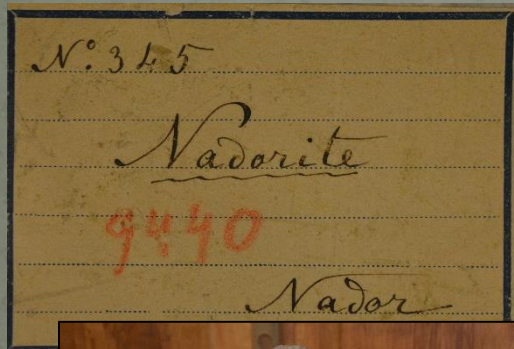 N° 345
Nadorite
9440
Nador